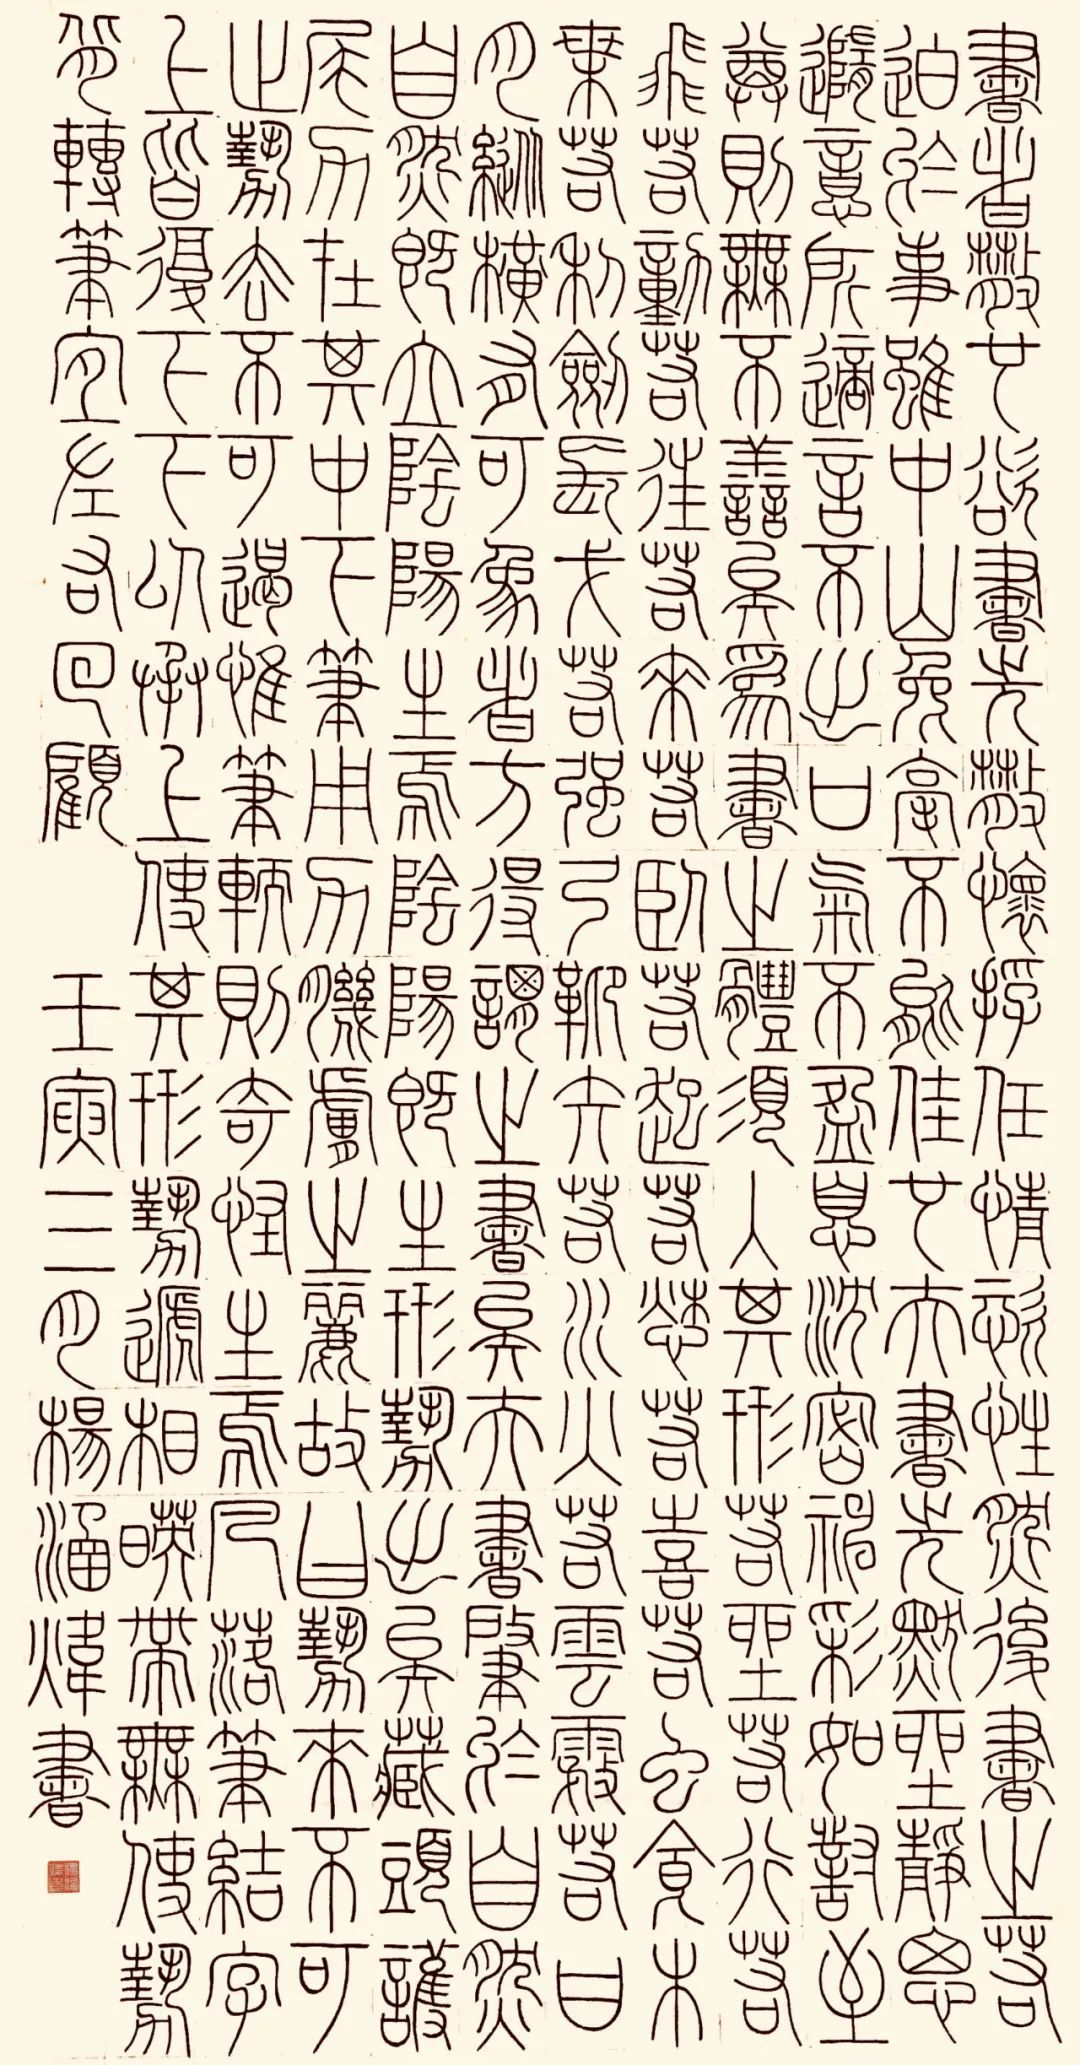 書者散也欲書先散懷抱任情恣性然後書之若
迫於事雖中山兔毫不能佳也夫書先默坐靜思
隨意所適言不出口氣不盈息沈密神彩如對至
尊則無不善矣為書之體須入其形若坐若行若
飛若動若往若來若臥若起若愁若喜若蟲食木
葉若利劍長戈若強弓硬矢若水火若雲霧若日
月縱橫有可象者方得謂之書矣夫書肇於自然
自然既立陰陽生焉陰陽既生形勢出矣藏頭護
尾力在其中下筆用力肌膚之麗故曰勢來不可
止勢去不可遏惟筆軟則奇怪生焉凡落筆結字
上皆覆下下以承上使其形勢遞相映帶無使勢
背轉筆宜左右回顧 壬寅三月楊涵煒書